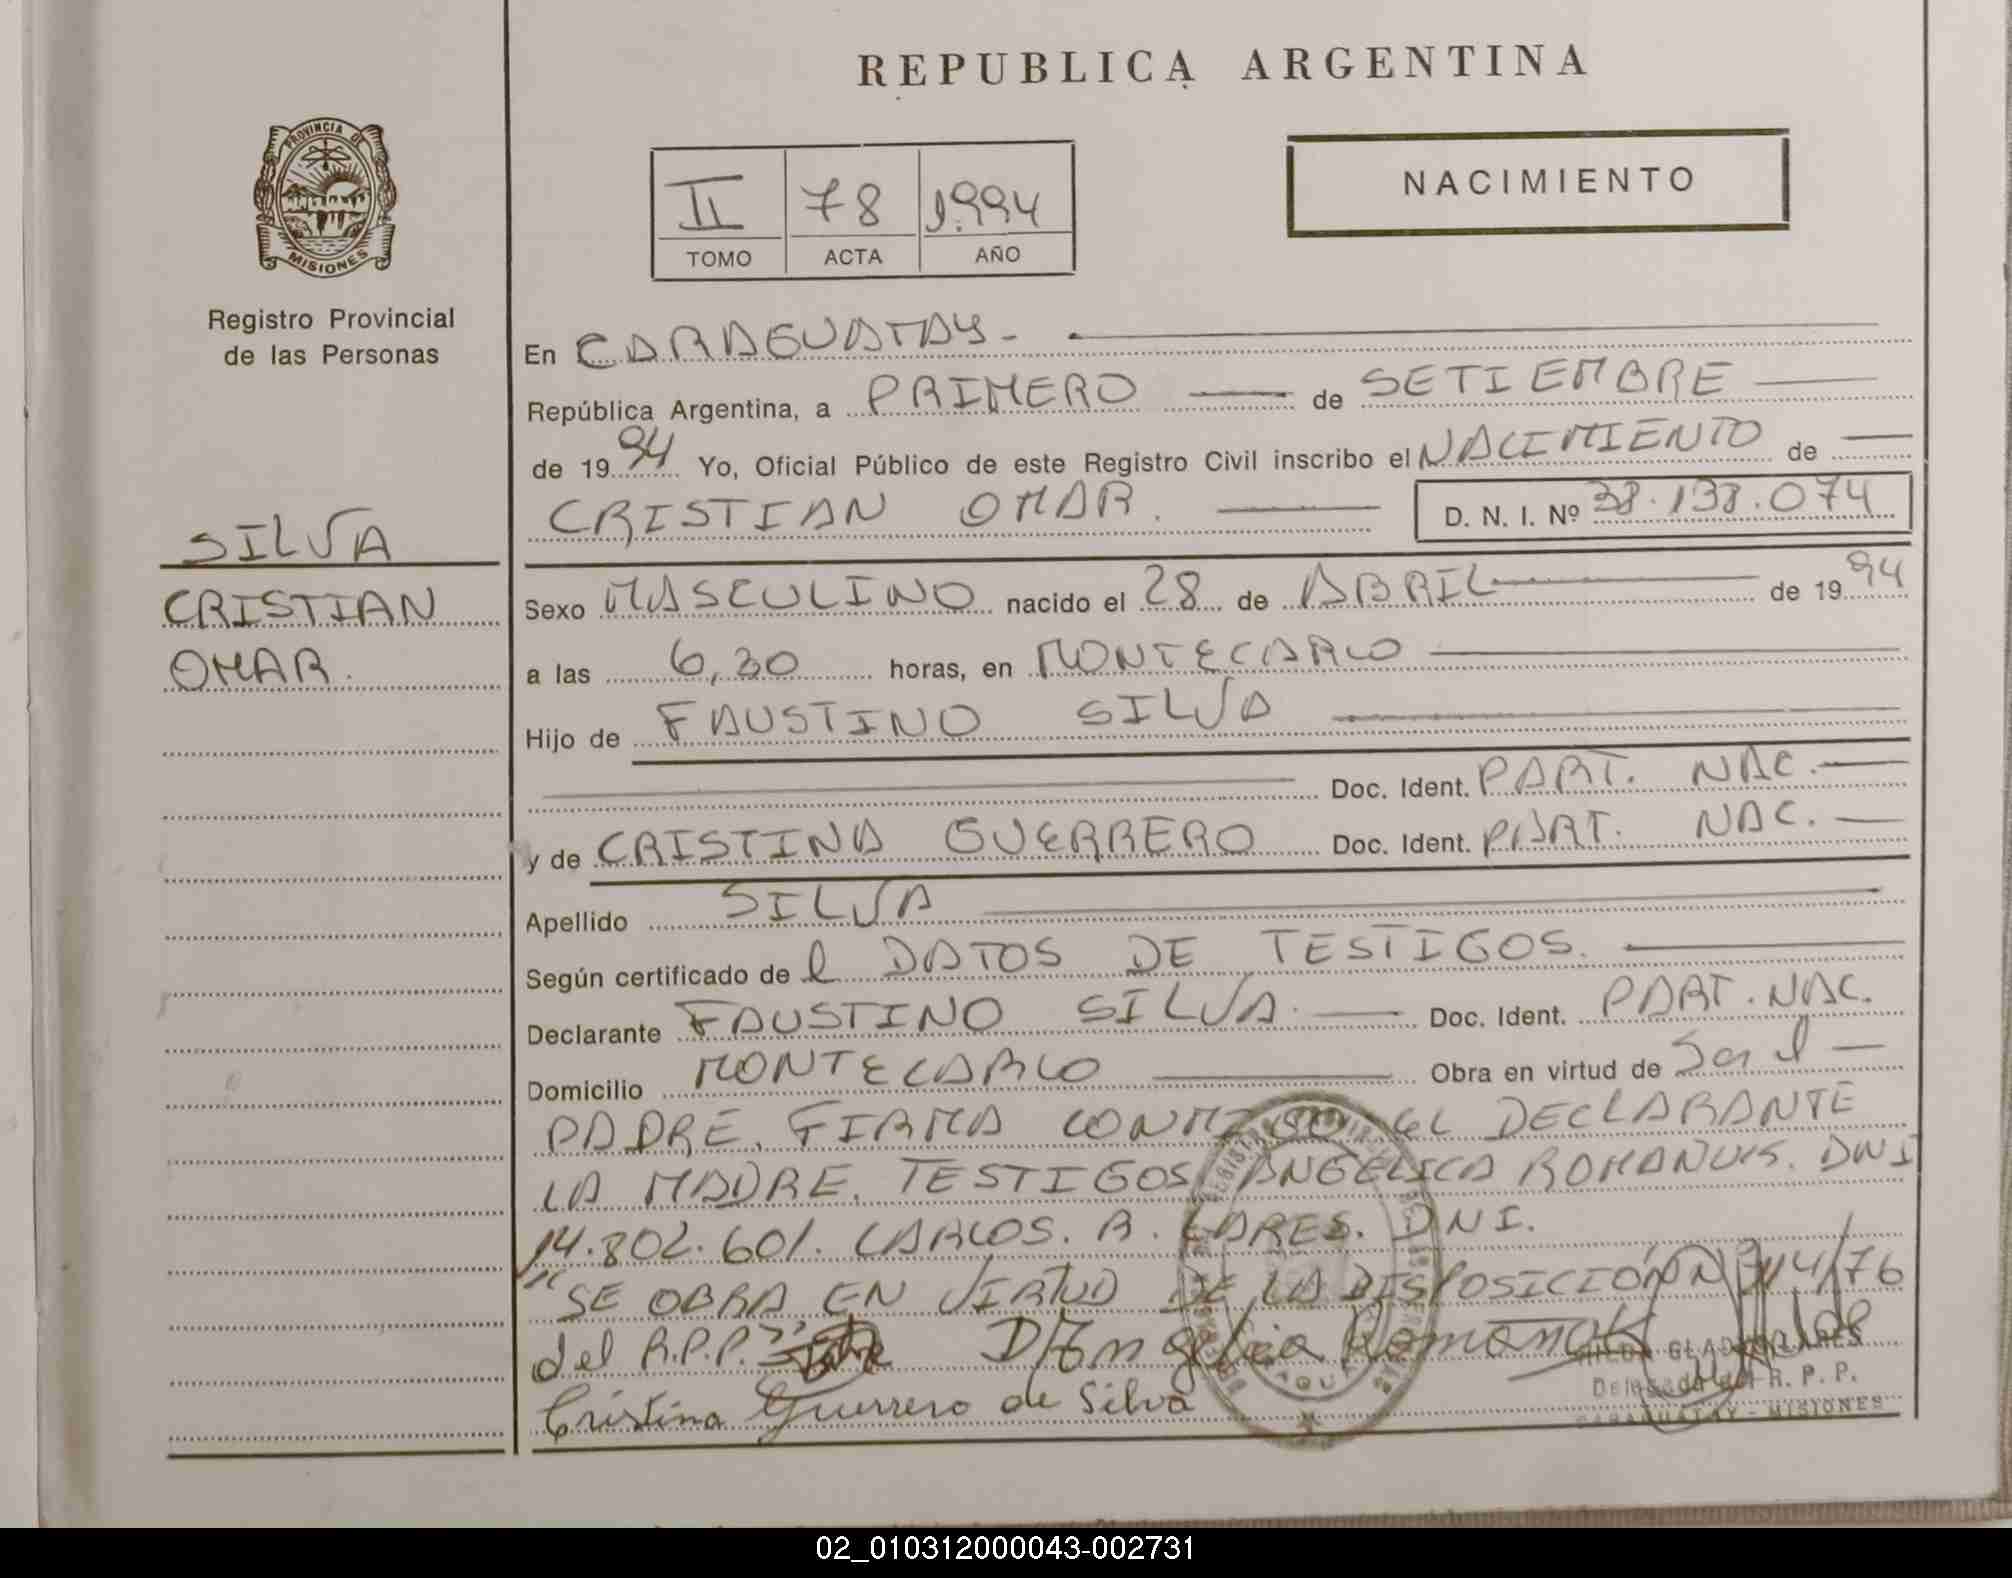 REPUBLICA ARGENTINA
PROVINCIA DE
MISIONES
Registro Provincial
de las Personas
NACIMIENTO
II 78 1.994
TOMO ACTA AÑO
En CARAGUATAY.-
República Argentina, a PRIMERO de SETIEMBRE
de 19 94 Yo, Oficial Público de este Registro Civil inscribo el NACIMIENTO de
CRISTIAN OMAR. D. N. I. Nº 38.138.074
SILVA
CRISTIAN
OMAR.
Sexo MASCULINO nacido el 28 de ABRIL de 19 94
a las 6,30 horas, en MONTECARLO
Hijo de FAUSTINO SILVA
Doc. Ident. PART. NAC.
y de CRISTINA GUERRERO Doc. Ident. PART. NAC.
Apellido SILVA
Según certificado de l DATOS DE TESTIGOS.
Declarante FAUSTINO SILVA. Doc. Ident. PART. NAC.
Domicilio MONTECARLO Obra en virtud de Ser el
PADRE. FIRMA CONMIGO EL DECLARANTE
LA MADRE. TESTIGOS ANGELICA DNI
14.802.601. CARLOS. R. LARES. DNI.
"SE OBRA EN VIRTUD DE LA DISPOSICIÓN Nº 314/76
del R.P.P."
Cristina Guerrero de Silva
GLADYS LARES
Delegada del R. P. P.
CARAGUATAY - MISIONES
02_010312000043-002731